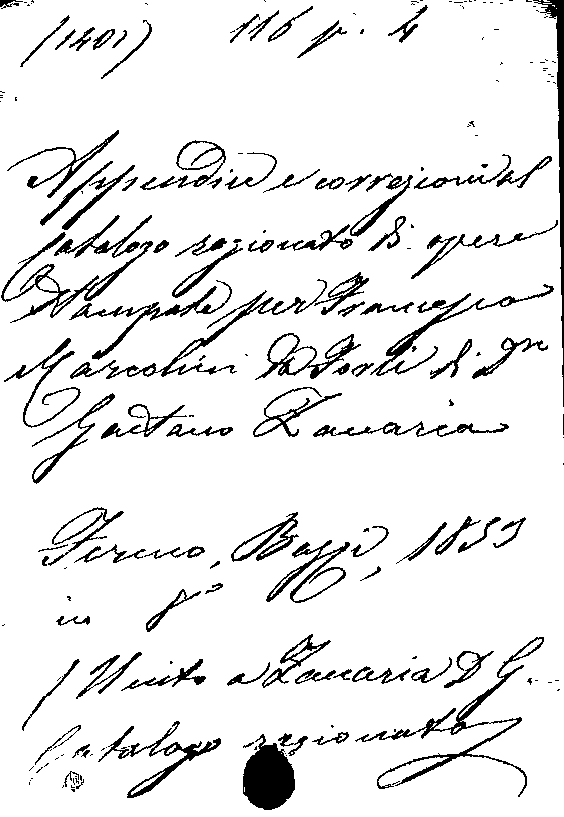 (1401) 116 p. 4
Appendice e correzioni al
Catalogo ragionato di opere
Stampate per Francesco
Marcolini da Forlì di Dn
Gaetano Zaccaria
Fermo, 1853
in 8°
(Unito a Zaccaria D G.
Catalogo ragionato)